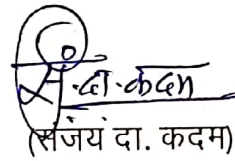 सं.दा.कदम
(संजय दा. कदम)